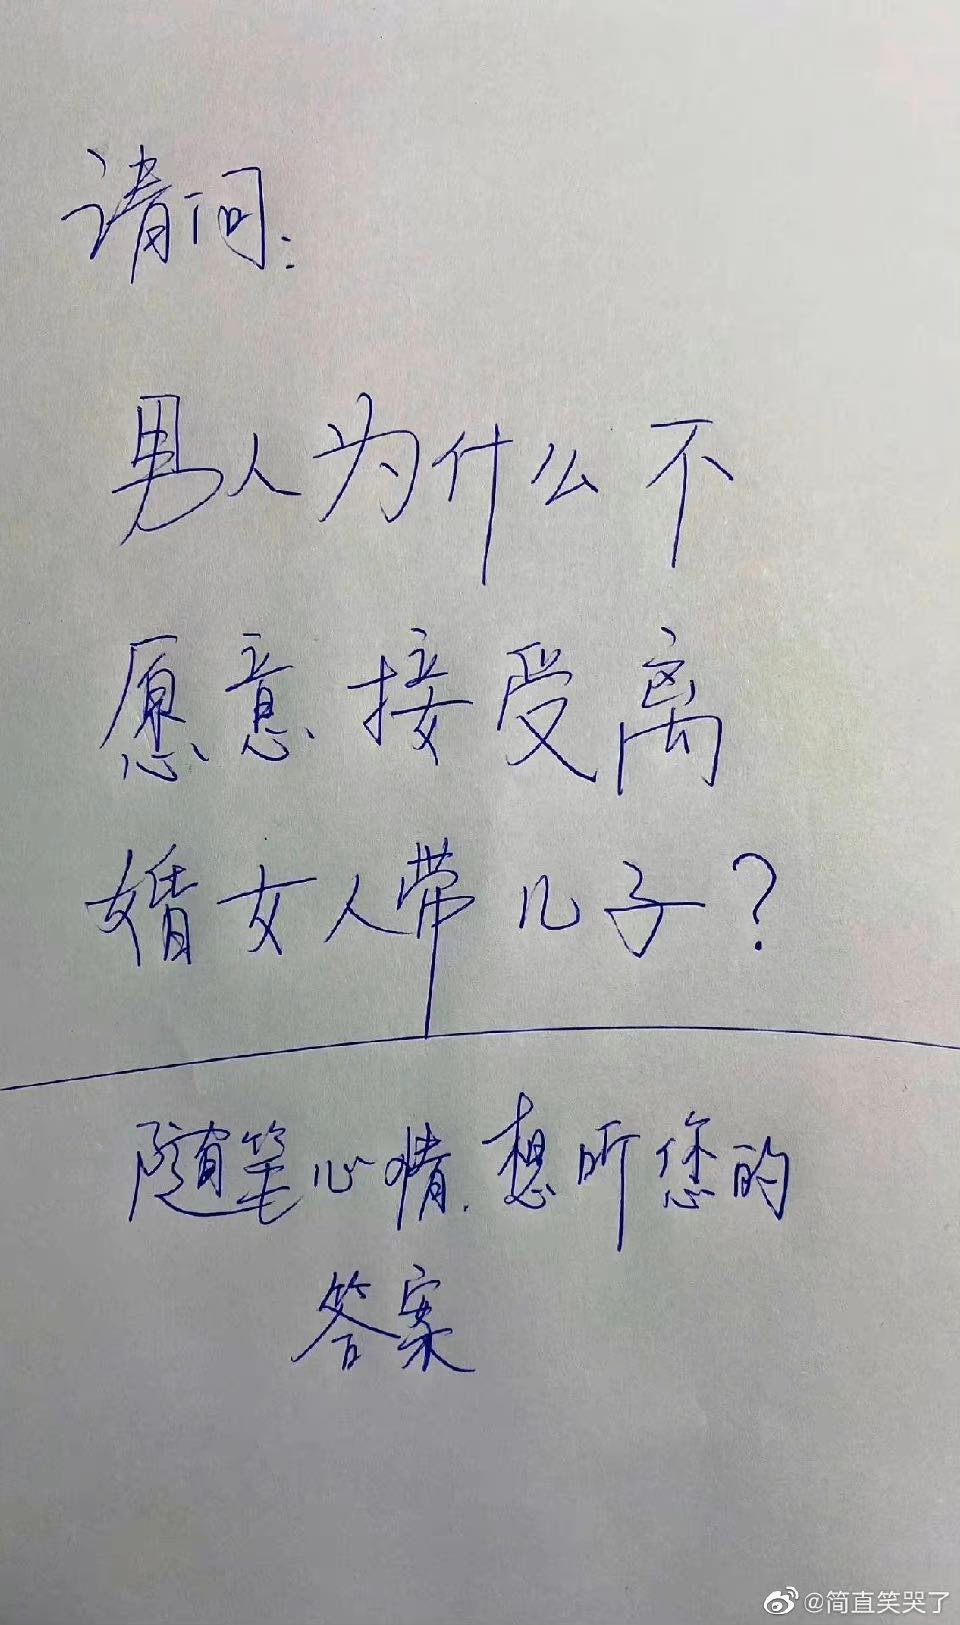 请问:
男人为什么不
愿意接受离
婚女人带儿子?
随笔心情.想听您的
答案
@简直笑哭了